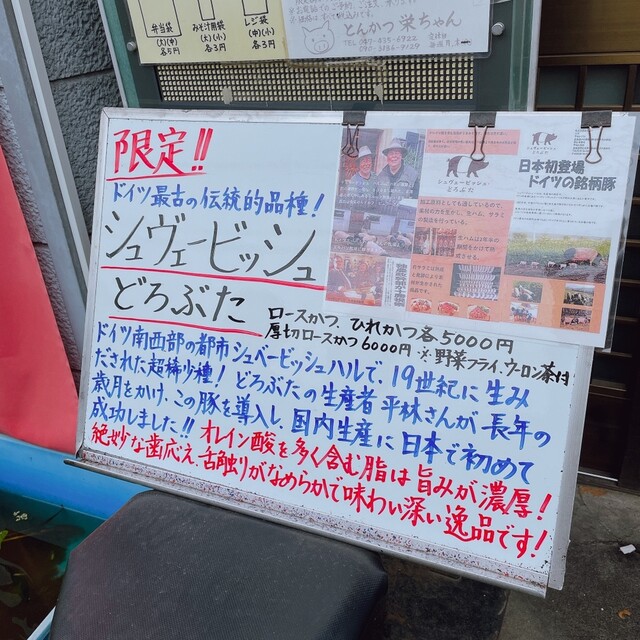 弁当袋
(大)(中)
各5円
みそ汁用袋
(大)(小)
各3円
レジ袋
(中)(小)
各3円
とんかつ 栄ちゃん
限定!!
ドイツ最古の伝統的品種!
シュヴェービッシュ
どろぶた
ロースかつ、ひれかつ各5000円
厚切ロースかつ6000円 ※野菜フライ、ウーロン茶付
ドイツ南西部の都市シュベービッシュハルで、19世紀に生み
だされた超稀少種! どろぶたの生産者 平林さんが長年の
歳月をかけ、この豚を導入し、国内生産に日本で初めて
成功しました!! オレイン酸を多く含む脂は旨みが濃厚!
絶妙な歯応え、舌触りがなめらかで味わい深い逸品です!
シュヴェービッシュ
どろぶた
日本初登場
ドイツの銘柄豚